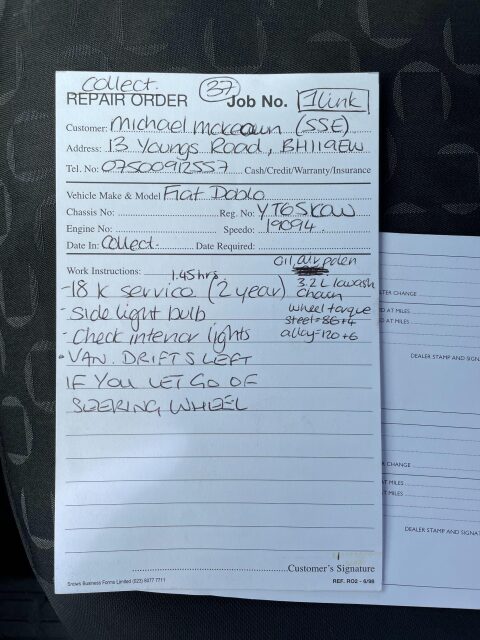 Collect. 37
REPAIR ORDER Job No. 1link
Customer: Michael mckeown (SSE)
Address: 13 Youngs Road, BH119EW
Tel. No: 07500912557 Cash/Credit/Warranty/Insurance
Vehicle Make & Model Fiat Doblo
Chassis No: Reg. No: YT65KOW
Engine No: Speedo: 19094
Date In: Collect. Date Required:
Oil, air, polen
Work Instructions: 1.45hrs
-18 K service (2 year) 3.2L
chain
- Side light bulb wheel torque
steel=86+4
- Check interior lights alloy=120+6
• VAN. DRIFTS LEFT
IF YOU LET GO OF
SEERING WHEEL
Customer's Signature
Snows Business Forms Limited (023) 8077 7711 REF. RO2 - 6/98
LTER CHANGE
D AT MILES
DEALER STAMP AND SIGN
R CHANGE
AT MILES
AT MILES
DEALER STAMP AND SIGNAT